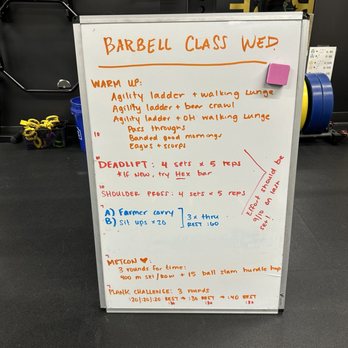 BARBELL CLASS WED.
WARM UP:
Agility ladder + walking lunge
Agility ladder + bear crawl
Agility ladder + OH walking lunge
Pass throughs
Banded good mornings
Eagles + scorps
DEADLIFT: 4 sets x 5 reps
*IF NEW, try HEX bar
SHOULDER PRESS: 4 sets x 5 reps
Effort should be
9/10 on last
set!
A) Farmer carry
B) Sit ups x 20
3x thru
REST :60
METCON ♥:
3 rounds for time:
400 m ski/row + 15 ball slam hurdle hop
PLANK CHALLENGE: 3 rounds
:20/:20/:20 REST → :30 REST → :40 REST